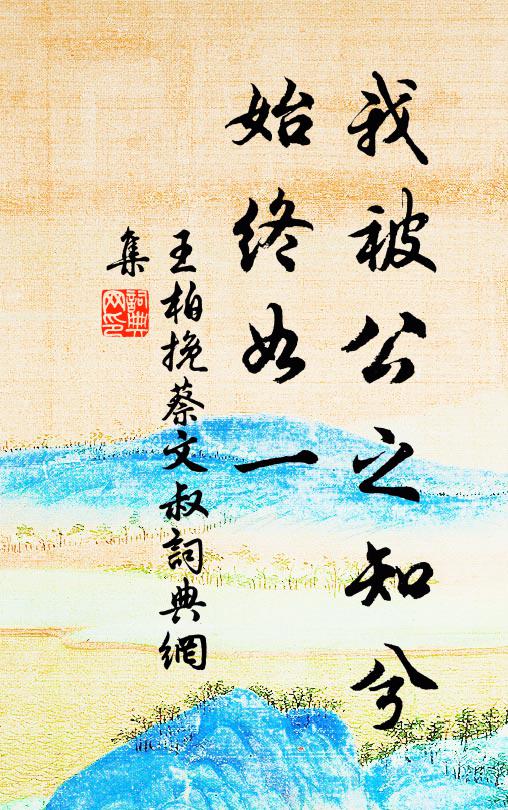 我被公之知兮
始終如一
王柏挽蔡文叔詞典網
集
詞典網印